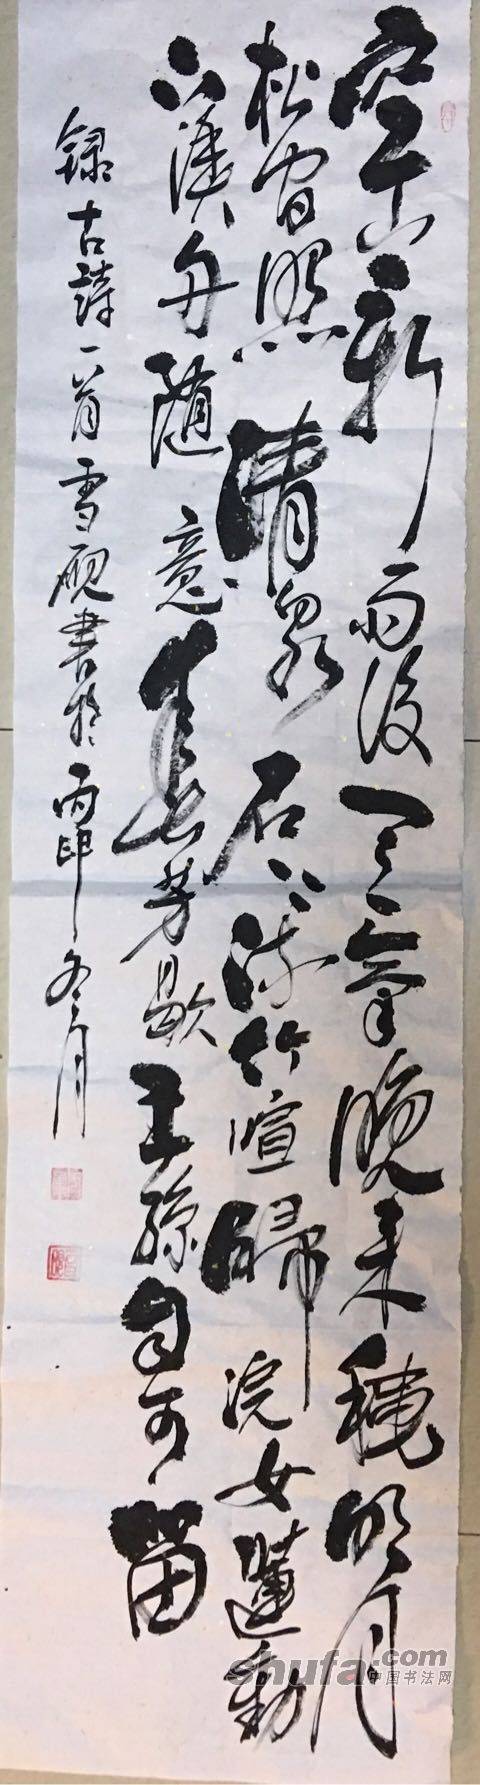 空山新雨後天氣晚来穐明月
松間照清泉石上流竹喧歸浣女蓮動
下漁舟随意春芳歇王孫自可留
録古詩一首雪砚書於丙申冬月
shufa.com
中国书法网